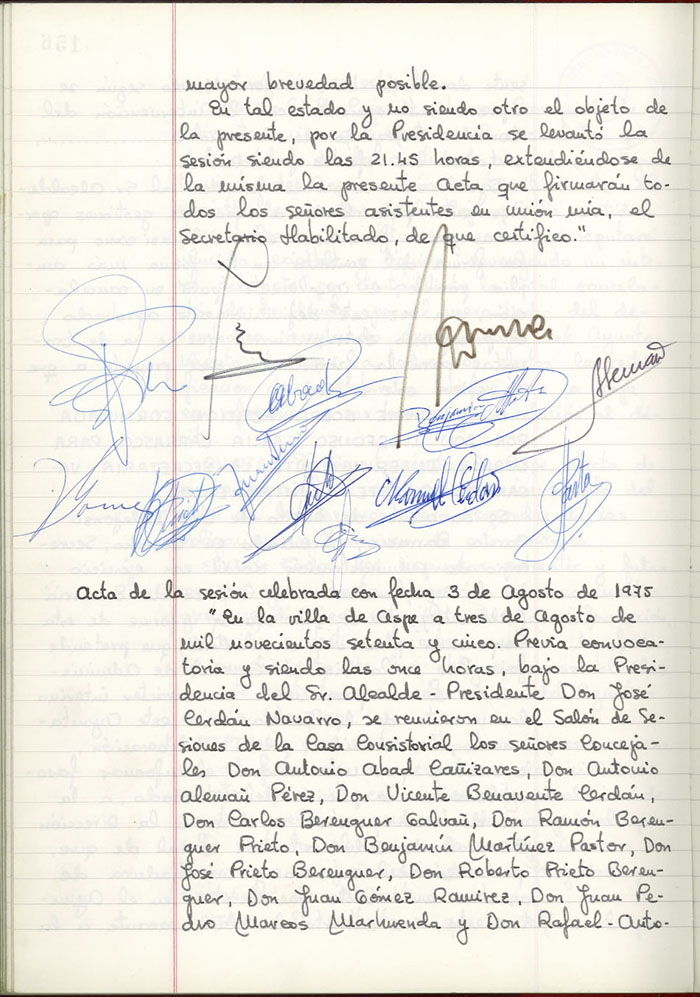 mayor brevedad posible.
En tal estado y no siendo otro el objeto de
la presente, por la Presidencia se levantó la
sesión siendo las 21.45 horas, extendiéndose de
la misma la presente Acta que firmarán to-
dos los señores asistentes en unión mía, el
Secretario Habilitado, de que certifico."
Abad
Benjamin
Aleman
Gomez
Prieto
Manuel Cerdan
Acta de la sesión celebrada con fecha 3 de Agosto de 1975
"En la villa de Aspe a tres de Agosto de
mil novecientos setenta y cinco. Previa convoca-
toria y siendo las once horas, bajo la Presi-
dencia del Sr. Alcalde-Presidente Don José
Cerdán Navarro, se reunieron en el Salón de Se-
siones de la Casa Consistorial los señores Conceja-
les Don Antonio Abad Cañizares, Don Antonio
Alemañ Pérez, Don Vicente Benavente Cerdán,
Don Carlos Berenguer Galvañ, Don Ramón Beren-
guer Prieto, Don Benjamín Martínez Pastor, Don
José Prieto Berenguer, Don Roberto Prieto Beren-
guer, Don Juan Gómez Ramirez, Don Juan Pe-
dro Marcos Marhuenda y Don Rafael-Anto-